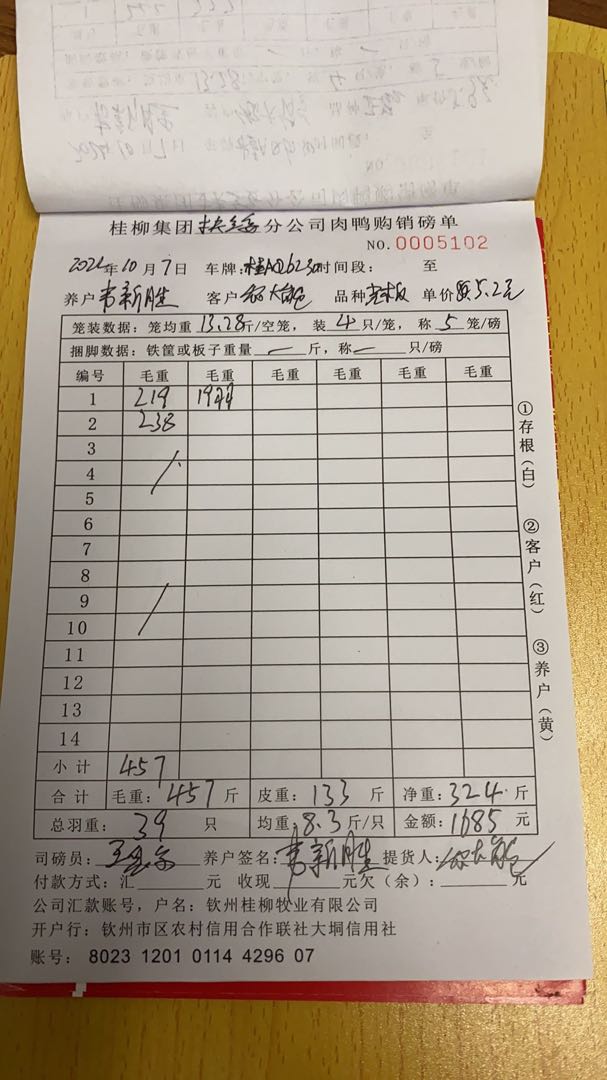 桂柳集团扶绥分公司肉鸭购销磅单
NO.0005102
年10月7日 车牌: 时间段: 至
养户 韦新胜 客户 品种 单价 5.2元
笼装数据: 笼均重 13.28斤/空笼, 装 4 只/笼, 称 5 笼/磅
捆脚数据: 铁筐或板子重量 — 斤, 称 — 只/磅
编号 毛重 毛重 毛重 毛重 毛重 毛重
1 219
2 238
3
4
5
6
7
8
9
10
11
12
13
14
小计 457
合计 毛重: 457 斤 皮重: 133 斤 净重: 324 斤
总羽重: 39 只 均重: 8.3 斤/只 金额: 1685 元
司磅员: 养户签名: 韦新胜 提货人:
付款方式: 汇 元 收现 元欠(余): 元
公司汇款账号, 户名: 钦州桂柳牧业有限公司
开户行: 钦州市区农村信用合作联社大垌信用社
账号: 8023 1201 0114 4296 07
①存根(白)
②客户(红)
③养户(黄)